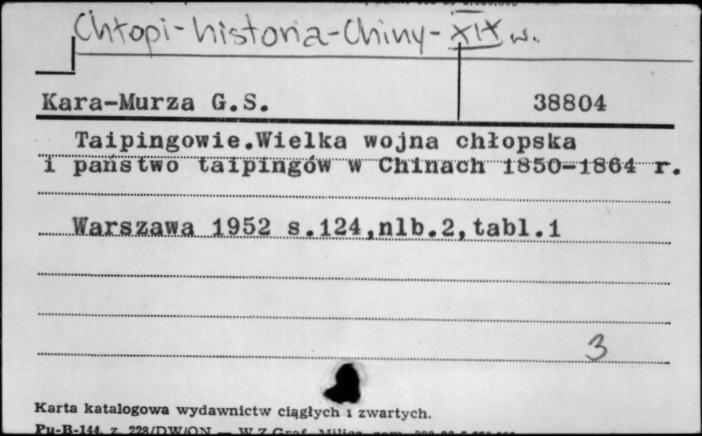 Chłopi-historia-Chiny-XIX w.
Kara-Murza G.S. 38804
Taipingowie.Wielka wojna chłopska
i państwo taipingów w Chinach 1850-1864 r.
Warszawa 1952 s.124,nlb.2,tabl.1
3
Karta katalogowa wydawnictw ciągłych i zwartych.
Pu-B-144, z. 228/DW/ON — W.Z.Graf.